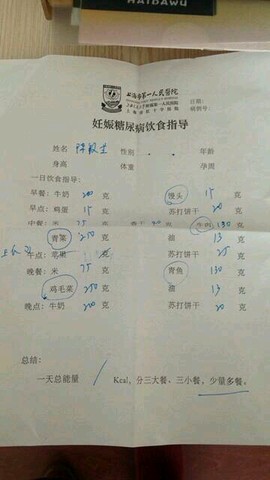 HAIDAWU
上海市第一人民医院
日期：
病历号：
妊娠糖尿病饮食指导
姓名 性别 年龄
身高 体重 孕周
一日饮食指导：
早餐：牛奶 200 克 馒头 15 克
早点：鸡蛋 15 克 苏打饼干 20 克
中餐：米 75 克 牛肉 130 克
青菜 250 克 油 13 克
午点：苹果 克 苏打饼干 25 克
晚餐：米 75 克 青鱼 130 克
鸡毛菜 250 克 油 13 克
晚点：牛奶 200 克 苏打饼干 20 克
总结：
一天总能量 / Kcal，分三大餐、三小餐，少量多餐。